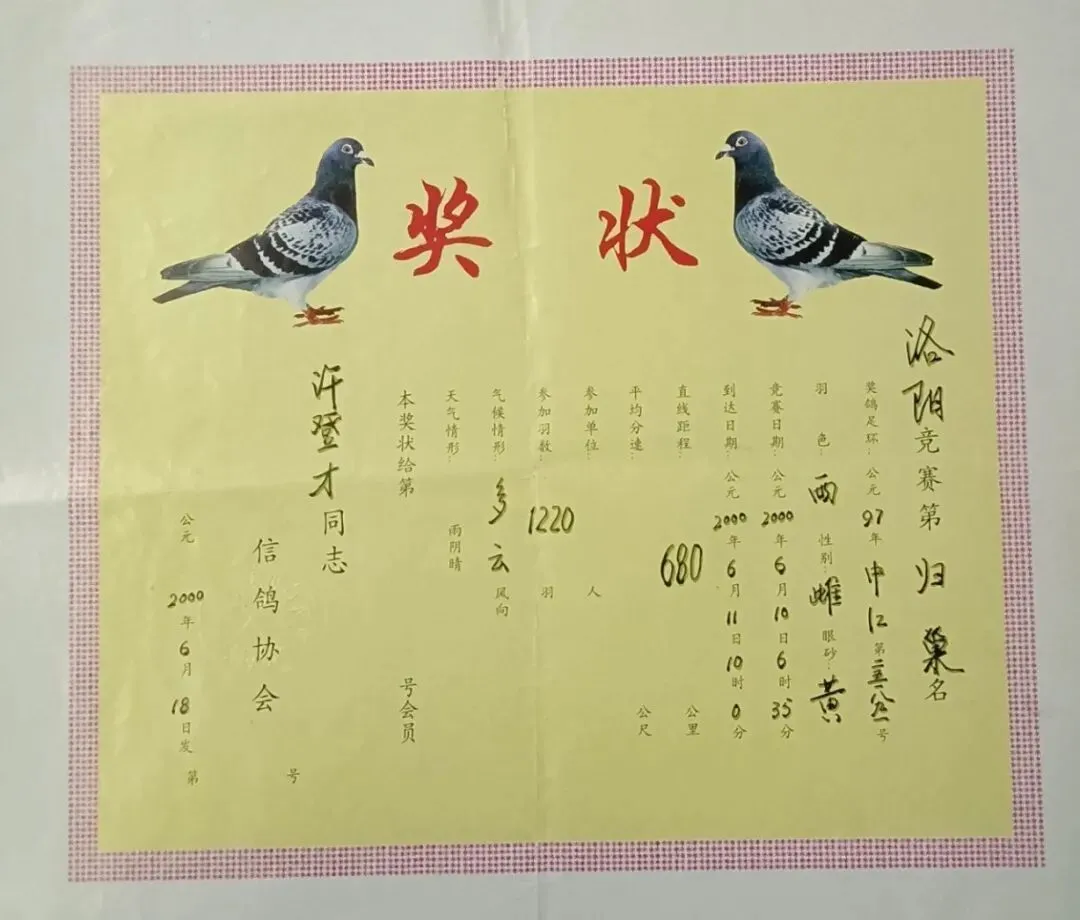 奖状
洛阳竞赛第归巢名
奖鸽足环：公元97年 第 号
羽色：雨 性别：雌 眼砂：黄
竞赛日期：公元2000年6月10日6时35分
到达日期：公元2000年6月11日10时0分
直线距程：680公里
平均分速： 公尺
参加单位： 人
参加羽数：1220羽
气候情形：多云 风向
天气情形： 雨阴晴
本奖状给第 号会员
许登才同志
信鸽协会
公元2000年6月18日发
第 号